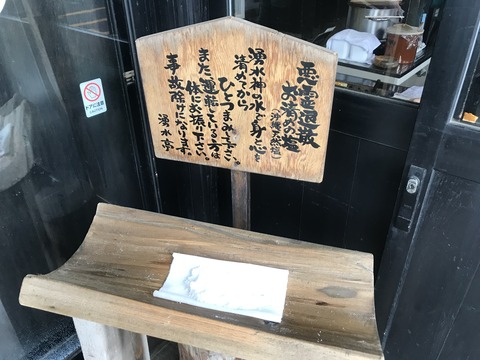 悪霊退散
お清めの塩
(沖縄天然塩)
湧水神の水で身と心を
清めてから
ひとつまみ下さい。
また、運転している方は
体にお振り下さい。
事故除けになります。
湧水亭